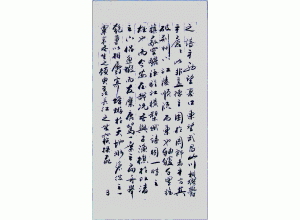 之詩乎西望夏口東望武昌山川相繆鬱
乎蒼蒼此非孟德之困於周郎者乎方其
破荆州下江陵順流而東也舳艫千里旌
旗蔽空釃酒臨江橫槊賦詩固一世之
雄也而今安在哉況吾與子漁樵於江渚
之上侶魚蝦而友麋鹿駕一葉之扁舟舉
匏尊以相屬寄蜉蝣於天地渺滄海之一
粟哀吾生之須臾羨長江之無窮挾飛